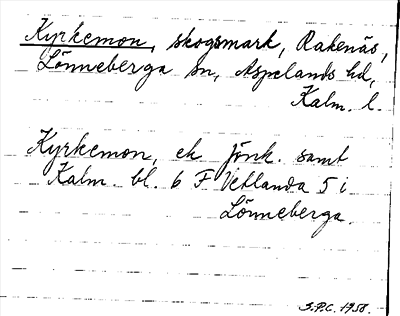 Kyrkemon, skogsmark, Rakenäs,
Lönneberga sn, Aspelands hd,
Kalm. l.
Kyrkemon, ek Jönk. samt
Kalm. bl. 6 F Vetlanda 5 i
Lönneberga.
S.P.C. 1958.